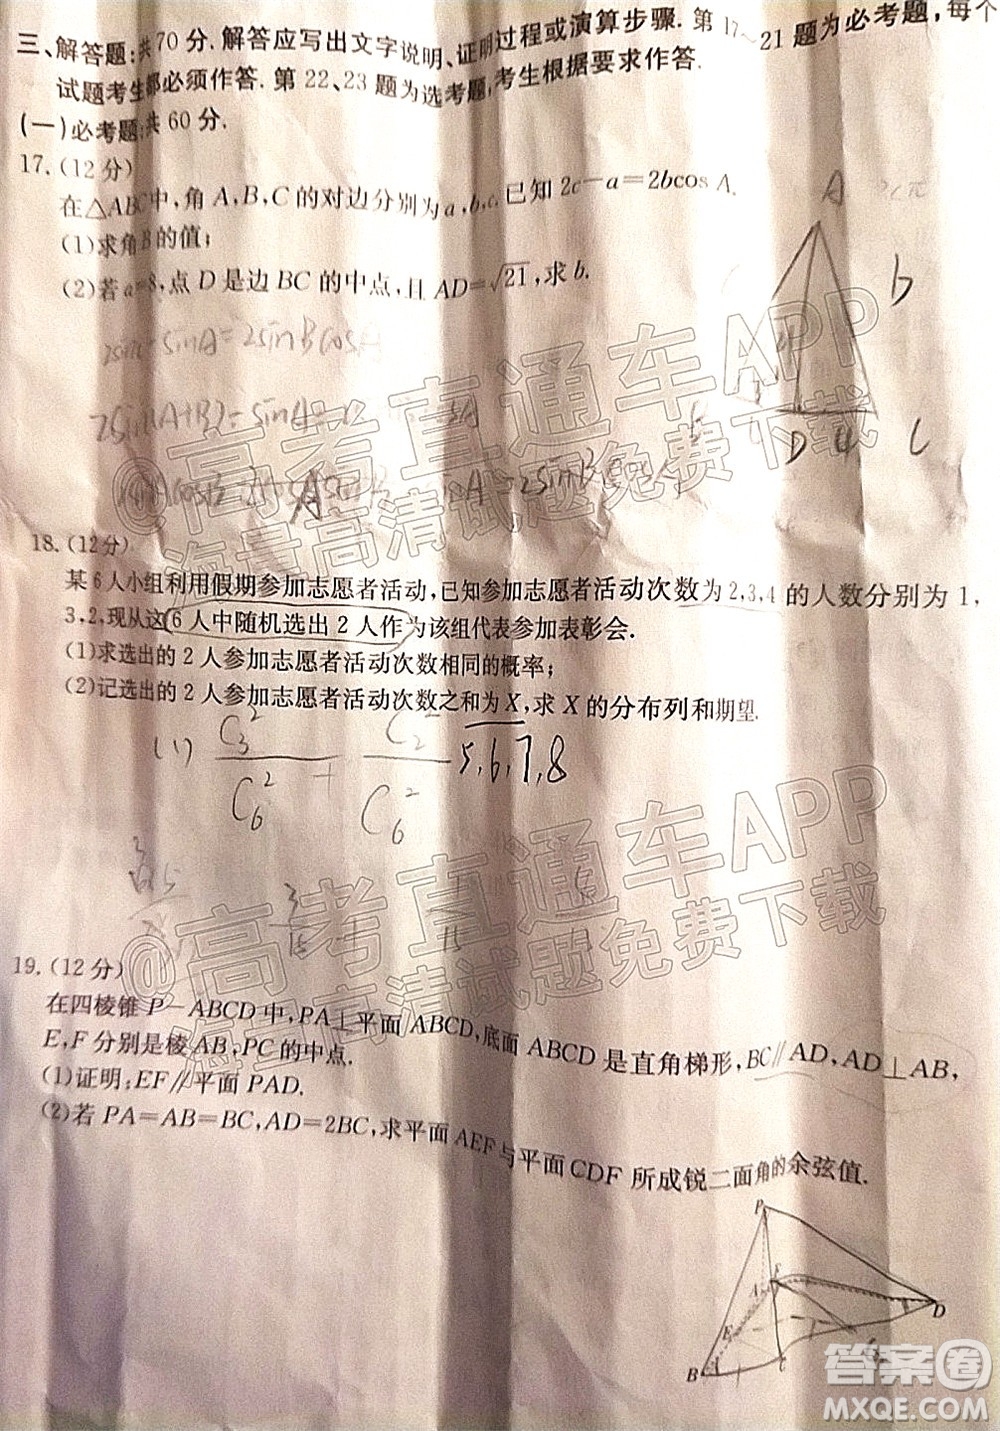 三、解答题:共70分.解答应写出文字说明、证明过程或演算步骤.第17~21题为必考题,每个
试题考生都必须作答.第22、23题为选考题,考生根据要求作答.
(一)必考题:共60分.
17.(12分)
在△ABC中,角A,B,C的对边分别为a,b,c.已知2c-a=2bcos A.
(1)求角B的值;
(2)若a=8,点D是边BC的中点,且AD=√21,求b.
A
b
D 4 C
2sinC-sinA=2sinBcosA
2sin(A+B)-sinA=
A=2sinBcos
18.(12分)
某6人小组利用假期参加志愿者活动,已知参加志愿者活动次数为2,3,4的人数分别为1,
3,2,现从这6人中随机选出2人作为该组代表参加表彰会.
(1)求选出的2人参加志愿者活动次数相同的概率;
(2)记选出的2人参加志愿者活动次数之和为X,求X的分布列和期望.
(1) C₃²/C₆² + C₂²/C₆² 5,6,7,8
3/15 + 1/15
19.(12分)
在四棱锥P-ABCD中,PA⊥平面ABCD,底面ABCD是直角梯形,BC∥AD,AD⊥AB,
E,F分别是棱AB,PC的中点.
(1)证明:EF∥平面PAD.
(2)若PA=AB=BC,AD=2BC,求平面AEF与平面CDF所成锐二面角的余弦值.
P
F
A
D
E
B
C
G
@高考直通车APP
海量高清试题免费下载
@高考直通车APP
海量高清试题免费下载
答案圈
MXQE.COM